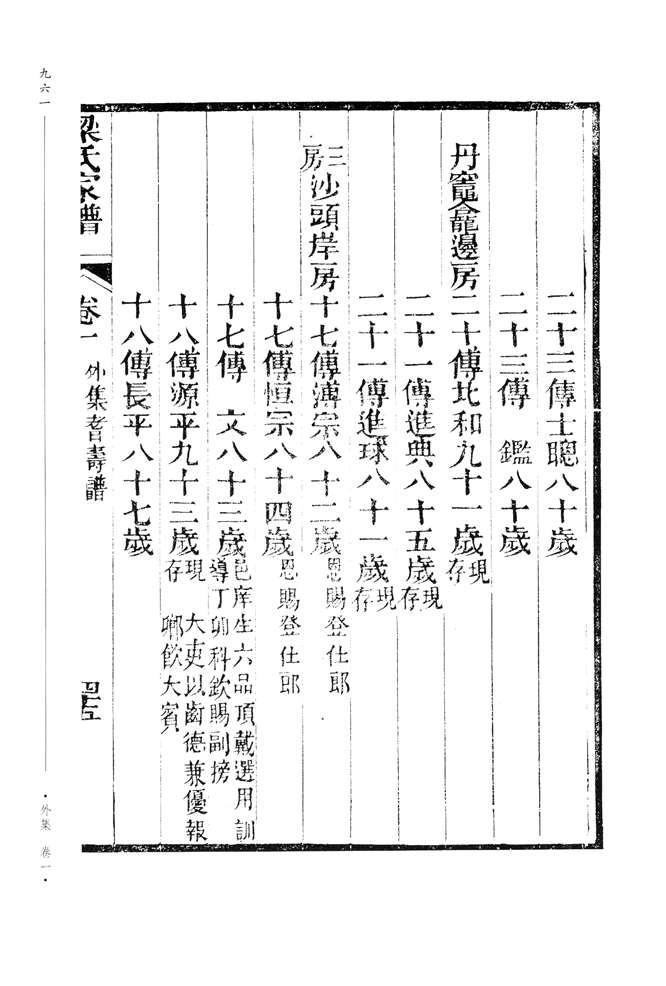 二十三傳士聰八十歲
二十三傳　鑑八十歲
丹竈龕龍邊房二十傳北和九十一歲現存
二十一傳進典八十五歲現存
二十一傳進球八十一歲現存
三房沙頭岸房十七傳溥宗八十二歲恩賜登仕郎
十七傳恒宗八十四歲恩賜登仕郎
十七傳　文八十三歲邑庠生六品頂戴選用訓導丁卯科欽賜副榜
十八傳源平九十三歲現存　大吏以齒德兼優報鄉飲大賓
十八傳長平八十七歲
梁氏家譜　卷一　外集耆壽譜　四十五
九六一
·外集　卷一·